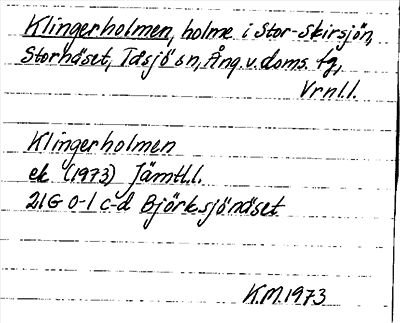 Klingerholmen, holme i Stor-Skirsjön,
Stornäset, Tåsjö sn, Ång. v. doms. tg,
Vrnl.l.
Klingerholmen
ek (1973) Jämtl.l.
21G 0-1 c-d Björksjönäset
K.M. 1973